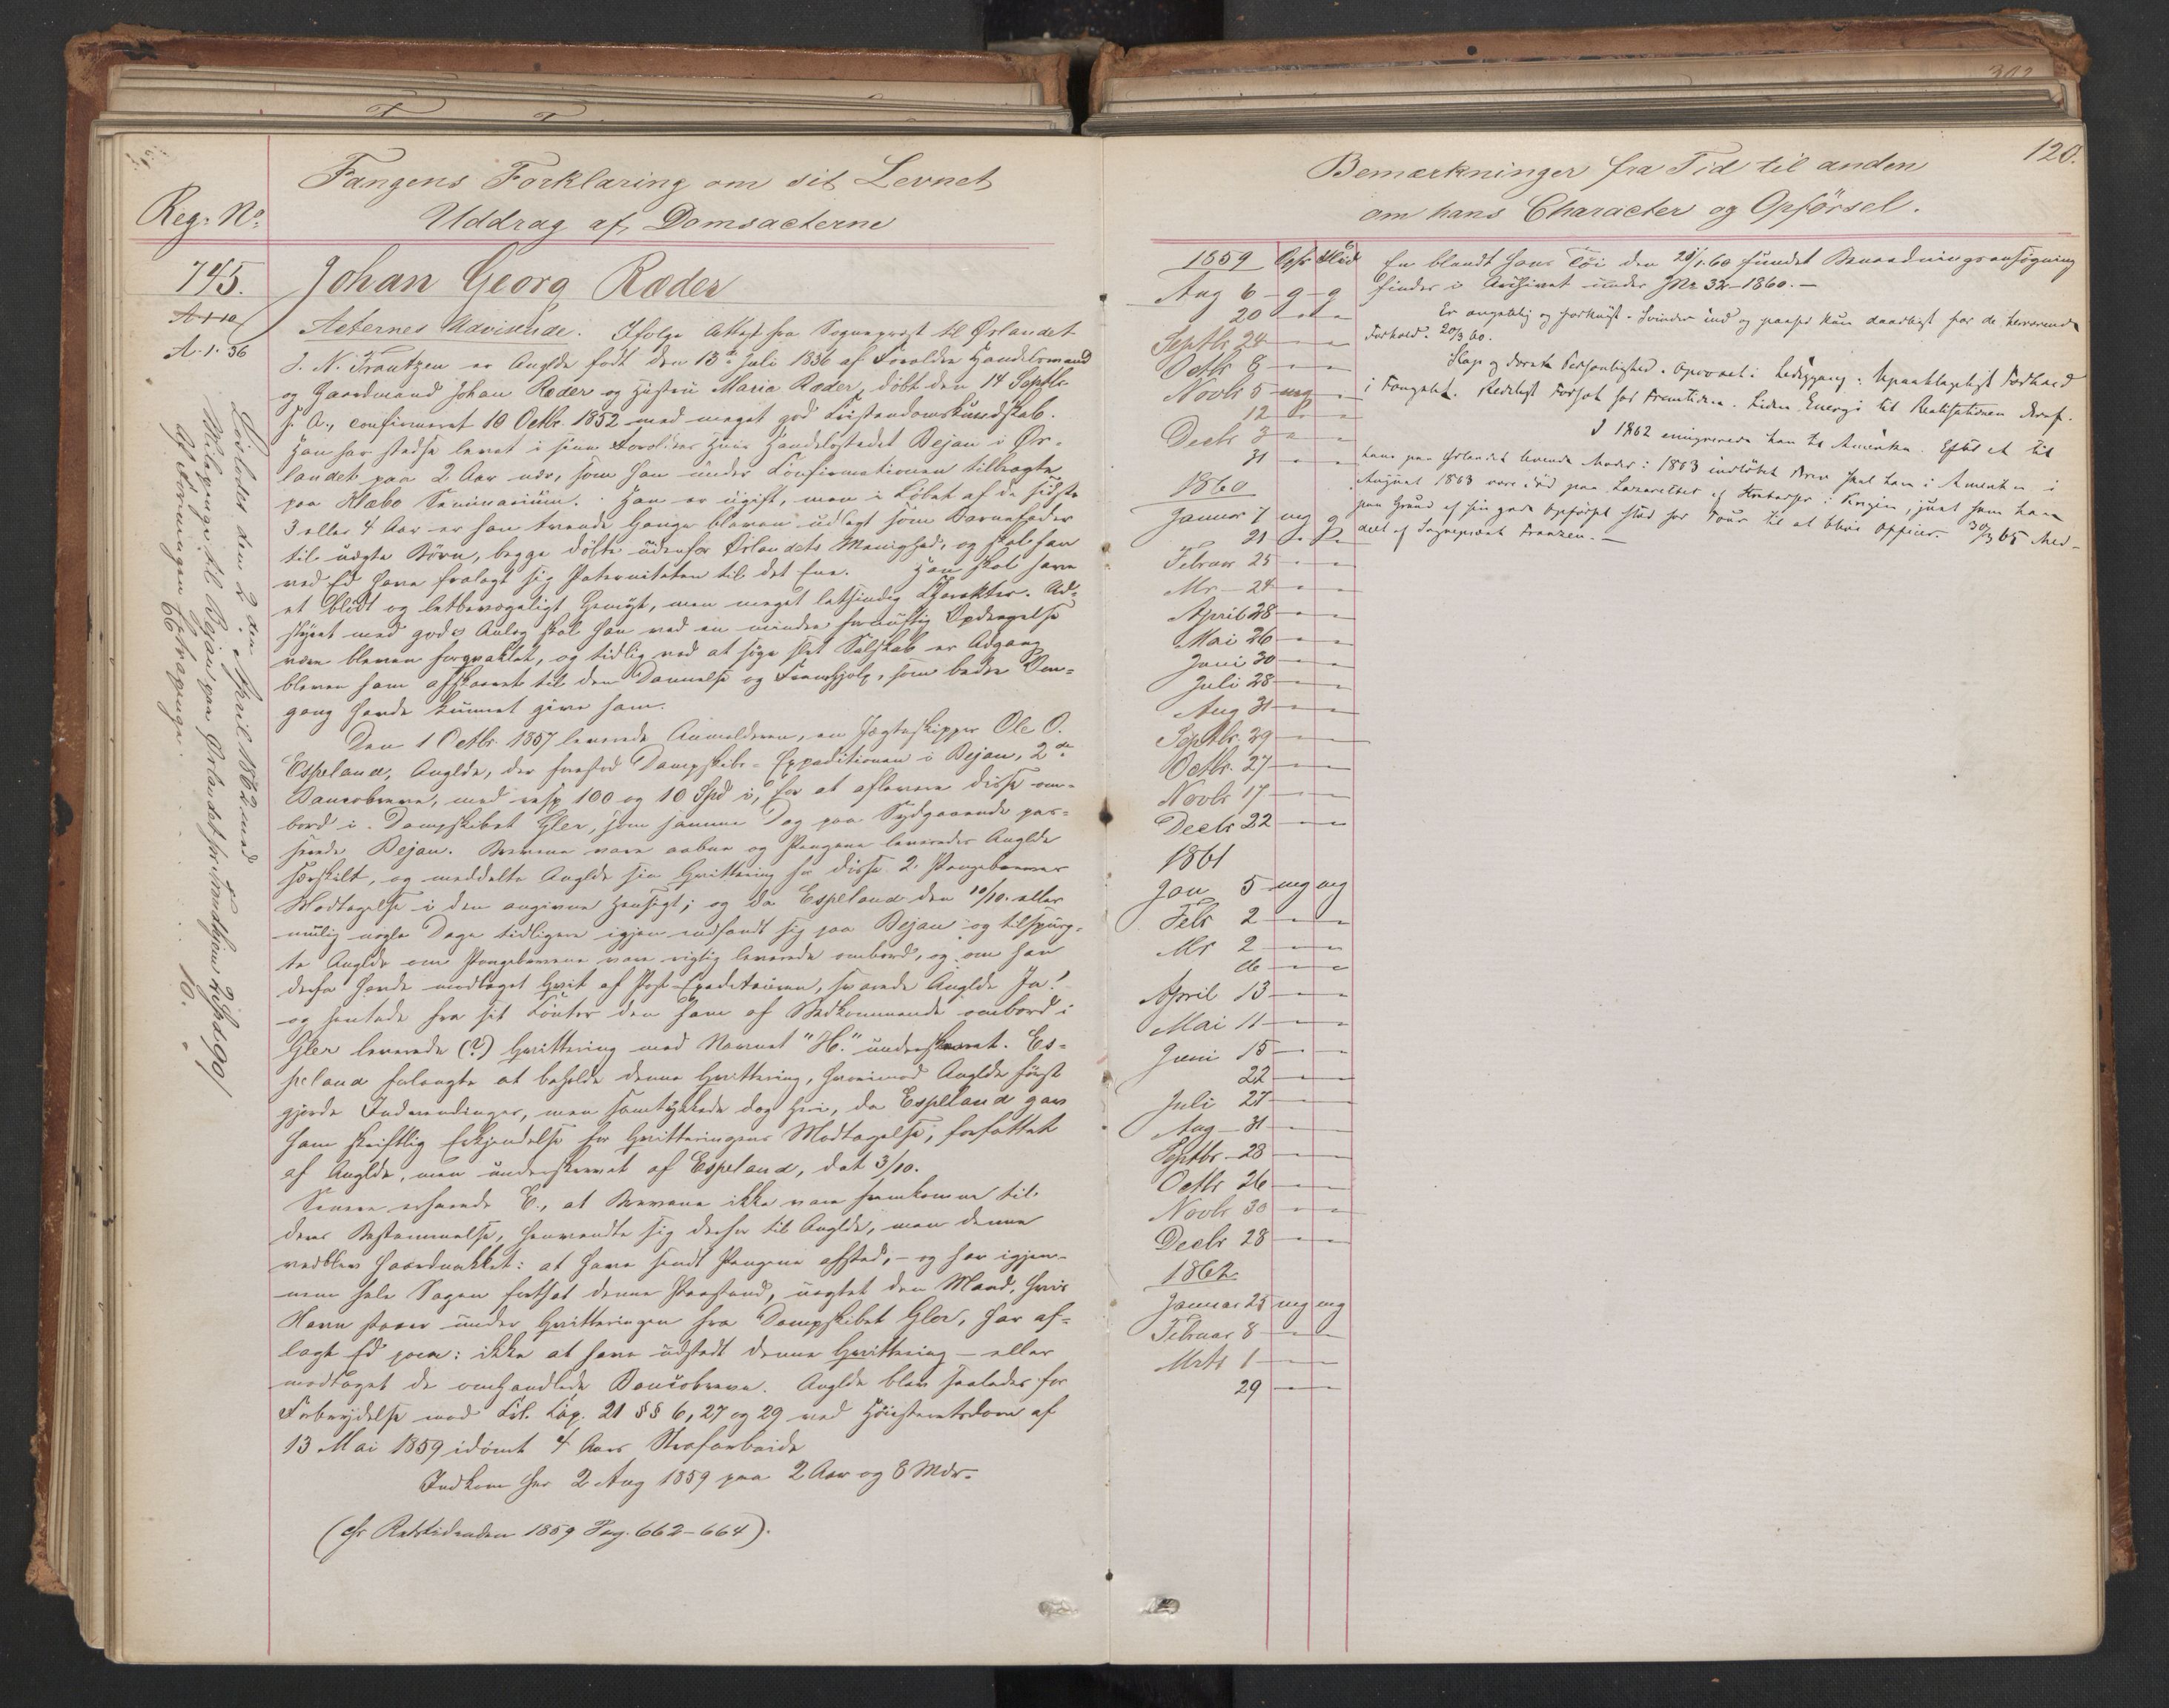 Fangens Forklaring om sit Levnet
Uddrag af Domsacterne
Reg: No.
745. Johan Georg Ræder
A 1-10
A. 1. 36
Acternes Udvisende. Ifølge Attest fra Sogneprest til Ørlandet
J. N. Frantzen er Anglde født den 13de Juli 1836 af Forældre Handelsmand
og Gaardmand Johan Ræder og Hustru Maria Ræder, døbt den 14 Septbr
s. A., confirmeret 10 Octbr. 1852 med meget god Christendomskundskab.
Han har stedse levet i sine Forældres Huus Handelsstedet Bejan i Ør-
landet paa 2 Aar nær, som han under Confirmationen tilbragte
paa Klæbo Seminarium. Han er ugift, men i Løbet af de sidste
3 eller 4 Aar er han tvende Gange bleven udlagt som Barnefader
til uægte Børn, begge døbte udenfor Ørlandets Menighed, og skal han
ved Ed have fralagt sig Paterniteten til det Ene. Han skal have
et blødt og letbevægeligt Gemyt, men meget letsindig Charakter. Ud-
styret med gode Anlæg skal han ved en mindre fornuftig Opdragelse
være bleven forqvaklet, og tidlig ved at søge slet Selskab er Adgang
bleven ham afskaaret til den Dannelse og Fremhjelp, som bedre Om-
gang havde kunnet give ham.
Den 1 Octbr. 1857 leverede Anmelderen, en Jægteskipper Ole O.
Espeland, Anglde, der forestod Dampskibs-Expeditionen i Bejan, 2de
Bancobreve, med resp. 100 og 10 Spd i, for at aflevere disse om-
bord i Dampskibet Gler, som samme Dag paa Sydgaaende pas-
serede Bejan. Brevene vare aabne og Pengene leveredes Anglde
særskilt, og meddelte Anglde sin Qvittering for disse 2 Pengebreves
Modtagelse i den angivne Hensigt; og da Espeland den 10/10. eller
mulig nogle Dage tidligere igjen indfandt sig paa Bejan og tilspurg-
te Anglde om Pengebrevene vare rigtig leverede ombord, og om han
derfor havde modtaget Qvit af Post-Expeditøren, svarede Anglde Ja!
og hentede fra sit Contor den ham af Vedkommende ombord i
Gler leverede (?) Qvittering med Navnet "H." underskrevet. Es-
peland forlangte at beholde denne Qvittering, hvorimod Anglde først
gjorde Indvendinger, men samtykkede dog heri, da Espeland gav
ham skriftlig Erkjendelse for Qvitteringens Modtagelse, forfattet
af Anglde, men underskrevet af Espeland, dat 3/10.
Senere erfarede E., at Brevene ikke vare fremkomne til
deres Bestemmelse, henvendte sig derfor til Anglde, men denne
vedblev haardnakket: at have sendt Pengene afsted, - og har igjen-
nem hele Sagen fortsat denne Paastand, uagtet den Mand, hvis
Navn staaer under Qvitteringen fra Dampskibet Gler, har af-
lagt Ed paa: ikke at have udstedt denne Qvittering - eller
modtaget de omhandlede Bancobreve. Anglde blev saaledes for
Forbrydelse mod Crl. Cap. 21 §§ 6, 27 og 29 ved Høiesteretsdom af
13 Mai 1859 idømt 4 Aars Strafarbeide
Indkom her 2 Aug 1859 paa 2 Aar og 8 Mdr.
(cfr Retstidenden 1859 Pag. 662-664).
Løslodes den 2den April 1862 med
Reisepenge til Bejan paa Ørlandet fra Trondhjem 2 Spd 90
Af Foreningen Fradragspenge 10.
120.
Bemærkninger fra Tid til anden
om hans Character og Opførsel.
1859 Opfr Flid
Aug 6 - g - g
20
Septbr 24
Octbr 8
Novbr 5 mg
12
Decbr 3
31
1860
Januar 7 mg g
21
Februar 25
Mr - 24
April 28
Mai 26
Juni 30
Juli 28
Aug 31
Septbr. 29
Octbr. 27
Novbr 17
Decbr 22
1861
Jan 5 mg mg
Febr 2
Mr 2
16
April 13
Mai 11
Juni 15
22
Juli 27
Aug - 31
Septbr - 28
Octbr 26
Novbr 30
Decbr 28
1862
Januar 25 mg mg
Februar 8
Mrts 1
29
En blandt hans Tøi den 28/1.60 fundet Benaadningsansøgning
findes i Archivet under Nr 32-1860. -
Er angstelig og forknyt. Svinder ind og passer kun daarligt for de herværende
Forhold. 20/3 60.
Slap og doven Personlighed. Opvoxet i Lediggang. Upaaklageligt Forhold
i Fængslet. Redeligt Forsæt for Fremtiden. Liden Energi til Realisationen deraf.
I 1862 emigrerede han til Amerika. Efter et til
hans paa Ørlandet levende Moder i 1863 indløbet Brev skal han i Amerika i
August 1863 være død paa Lazarettet af Strabadser i Krigen, just som han
paa Grund af sin gode Opførsel stod for Tour til at blive Officier. 30/3 65 Med-
deelt af Sogneprest Franzen. -